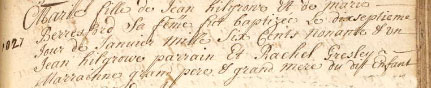 Marie fille de Jean hilgrove Et de marie
Berresford Sa fême fut baptizée Le dixseptieme
102
Jour de Janvier mille Six Cents nonante & un
Jean hilgrove parrain Et Rachel Gresley
Marraine grand pere & grand mere du dit Enfant